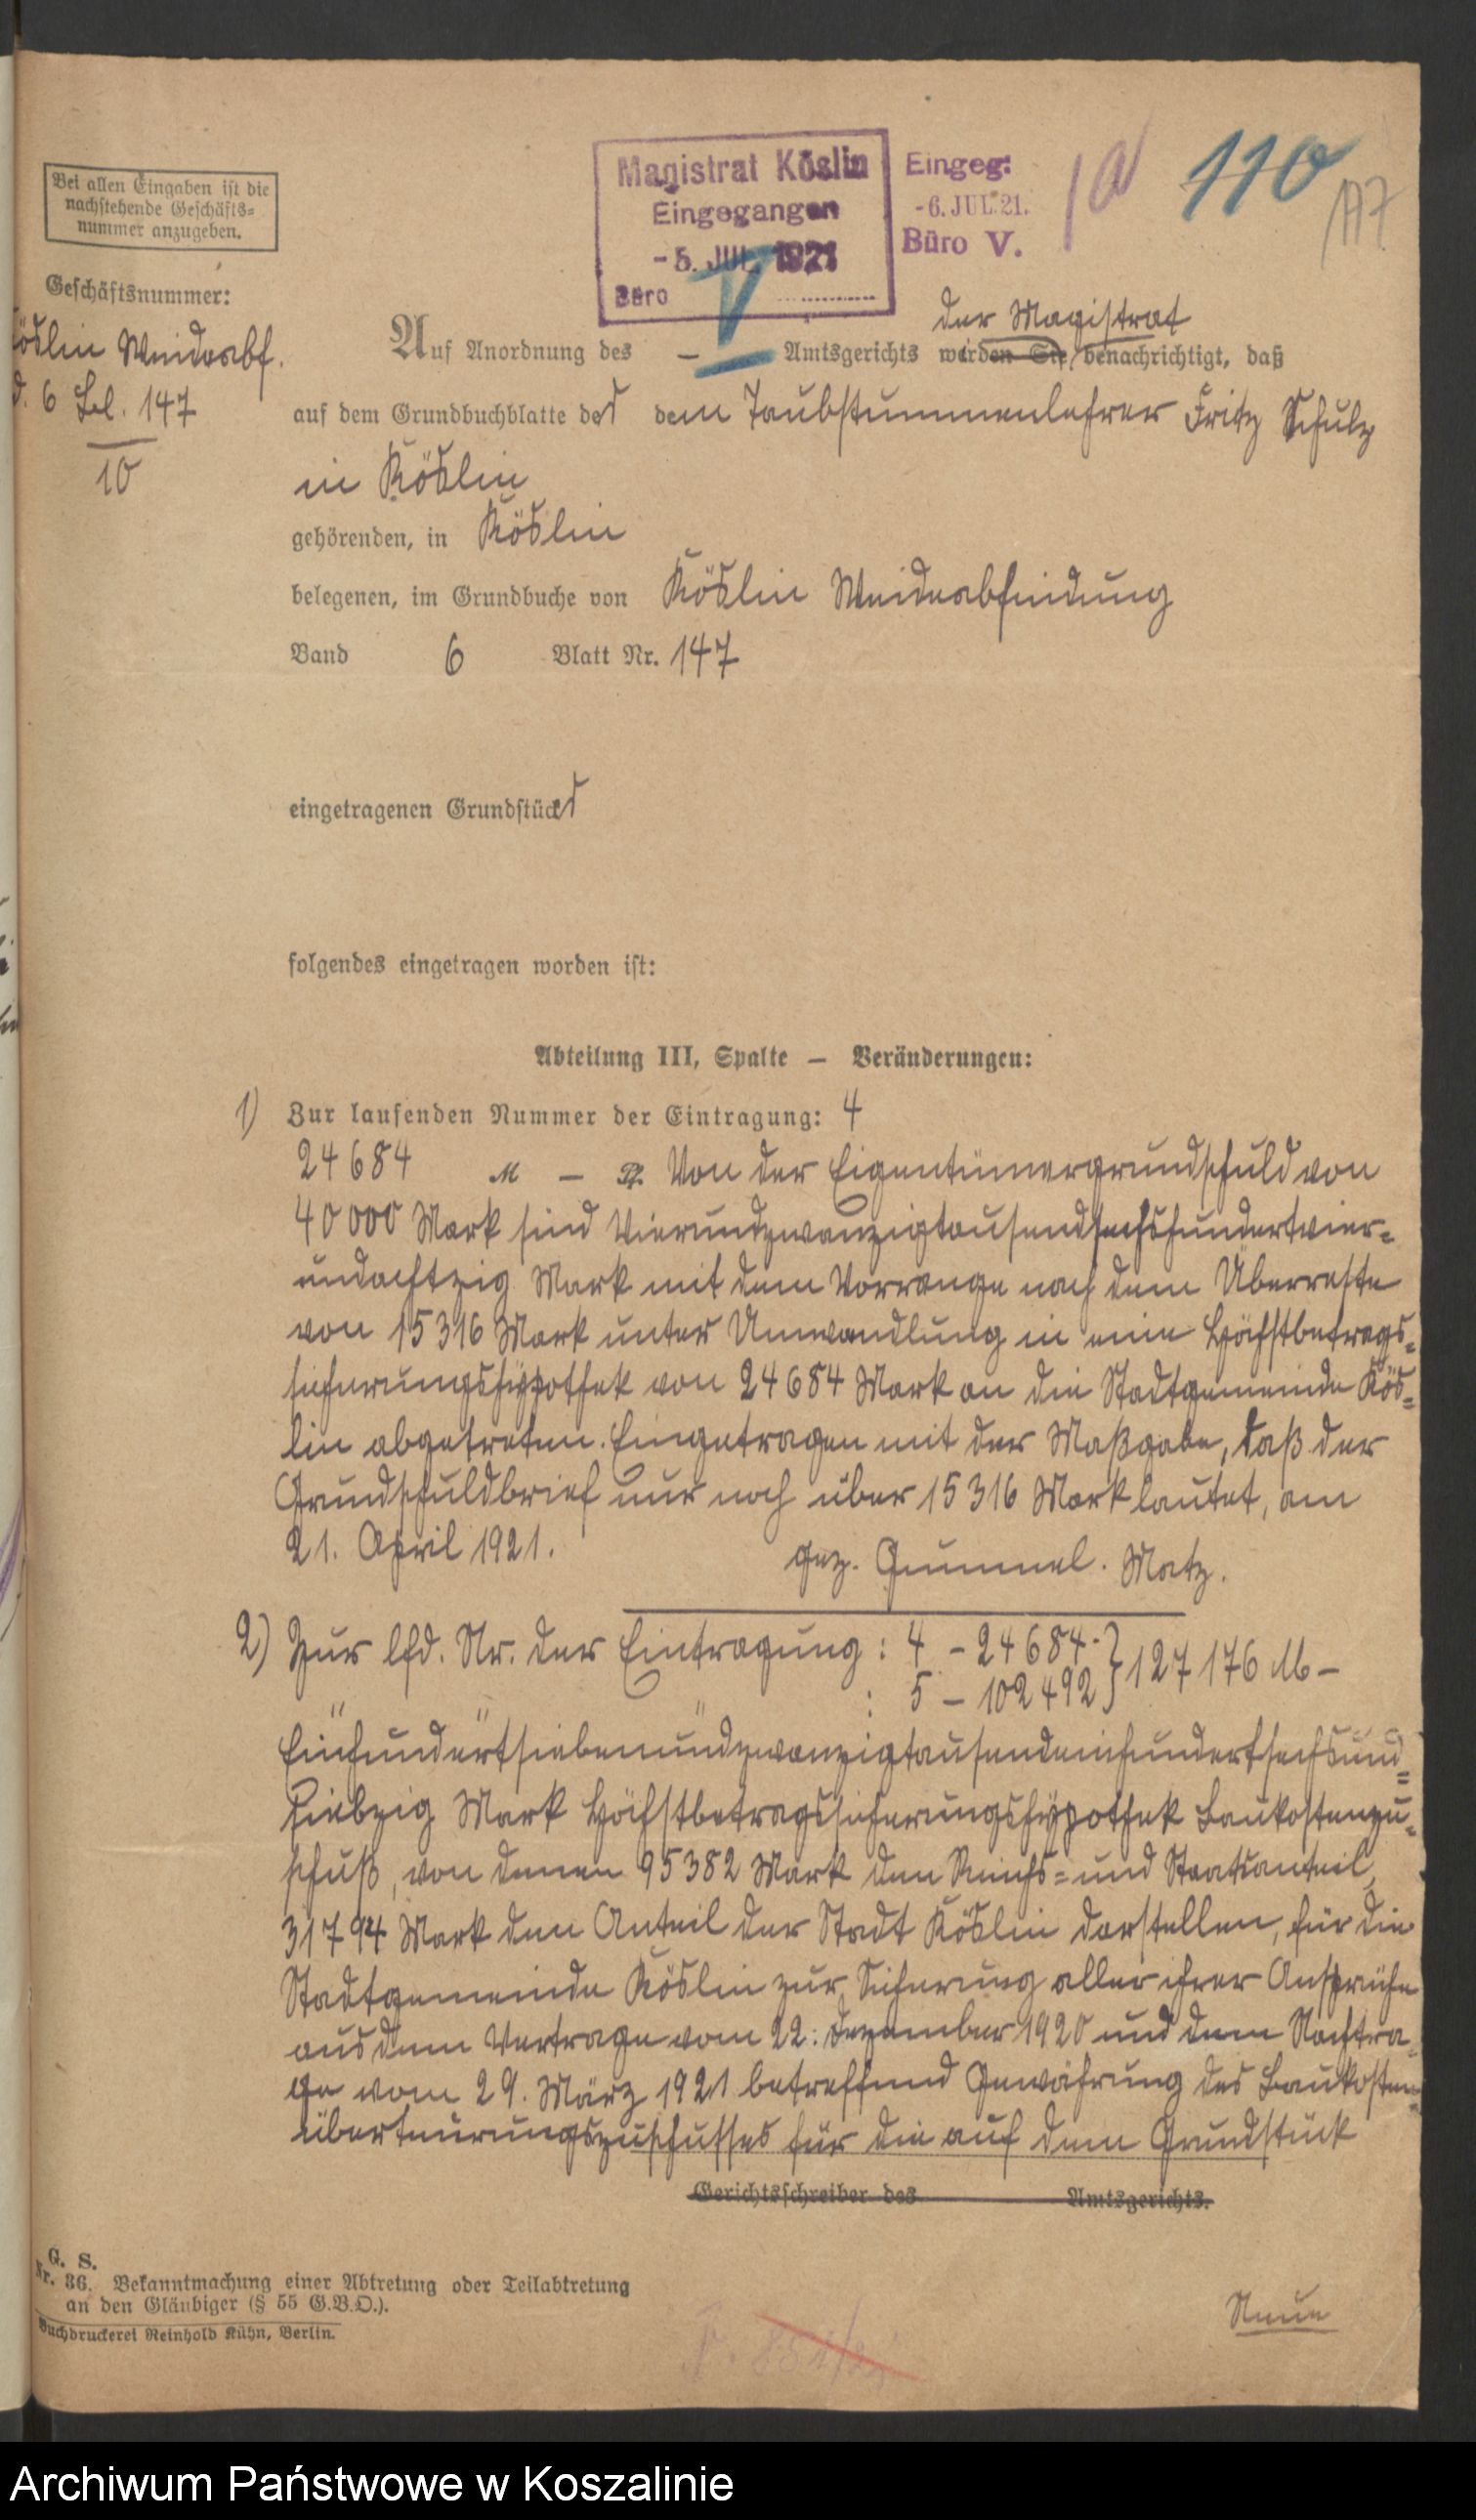 Bei allen Eingaben ist die
nachstehende Geschäfts-
nummer anzugeben.
Geschäftsnummer:
Köslin Weideabf.
d. 6 Bl. 147
10
Magistrat Köslin
Eingegangen
- 5. JUL. 1921
Büro V
Eingeg:
- 6. JUL. 21.
Büro V.
110
117
der Magistrat
Auf Anordnung des – Amtsgerichts werden Sie benachrichtigt, daß
auf dem Grundbuchblatte des dem Taubstummenlehrer Fritz Schulz
in Köslin
gehörenden, in Köslin
belegenen, im Grundbuche von Köslin Weideabfindung
Band 6 Blatt Nr. 147
eingetragenen Grundstücks
folgendes eingetragen worden ist:
Abteilung III, Spalte – Veränderungen:
1) Zur laufenden Nummer der Eintragung: 4
24684 M – Pf. Von der Eigentümergrundschuld von
40000 Mark sind Vierundzwanzigtausendsechshundertvier=
undachtzig Mark mit dem Vorrange nach dem Überreste
von 15316 Mark unter Umwandlung in eine Höchstbetrags=
sicherungshypothek von 24684 Mark an die Stadtgemeinde Kös=
lin abgetreten. Eingetragen mit der Maßgabe, daß der
Grundschuldbrief nur noch über 15316 Mark lautet, am
21. April 1921.
gez. Gummel. Matz.
2) Zur lfd. Nr. der Eintragung: 4 – 24684.– } 127176 M –
: 5 – 102492 }
Einhundertsiebenundzwanzigtausendeinhundertsechsund=
siebzig Mark Höchstbetragssicherungshypothek Baukostenzu=
schuß, von denen 95382 Mark den Reichs= und Staatsanteil,
31794 Mark den Anteil der Stadt Köslin darstellen, für die
Stadtgemeinde Köslin zur Sicherung aller ihrer Ansprüche
aus dem Vertrage vom 22. Dezember 1920 und dem Nachtra=
ge vom 29. März 1921 betreffend Gewährung des Baukosten=
überteuerungszuschusses für die auf dem Grundstück
Gerichtsschreiber des Amtsgerichts.
G. S.
Nr. 36. Bekanntmachung einer Abtretung oder Teilabtretung
an den Gläubiger (§ 55 G.B.O.).
Buchdruckerei Reinhold Kühn, Berlin.
Archiwum Państwowe w Koszalinie